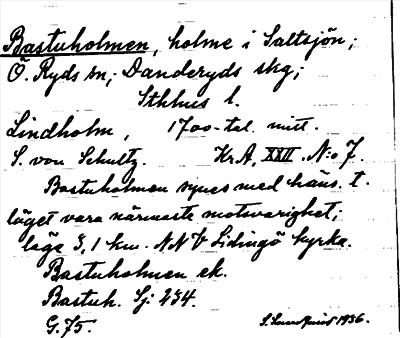 Bastuholmen, holme i Saltsjön;
Ö. Ryds sn, Danderyds skg;
Sthlms l.
Lindholm, 1700-tal. mitt.
S. von Schultz. Kr.A. XXII. N:o 7.
Bastuholmen synes med häns. t.
läget vara närmaste motsvarighet;
läge 3,1 km. NNV Lidingö kyrka.
Bastuholmen ek.
Bastuh. Sj: 234.
G. 75. 1936.